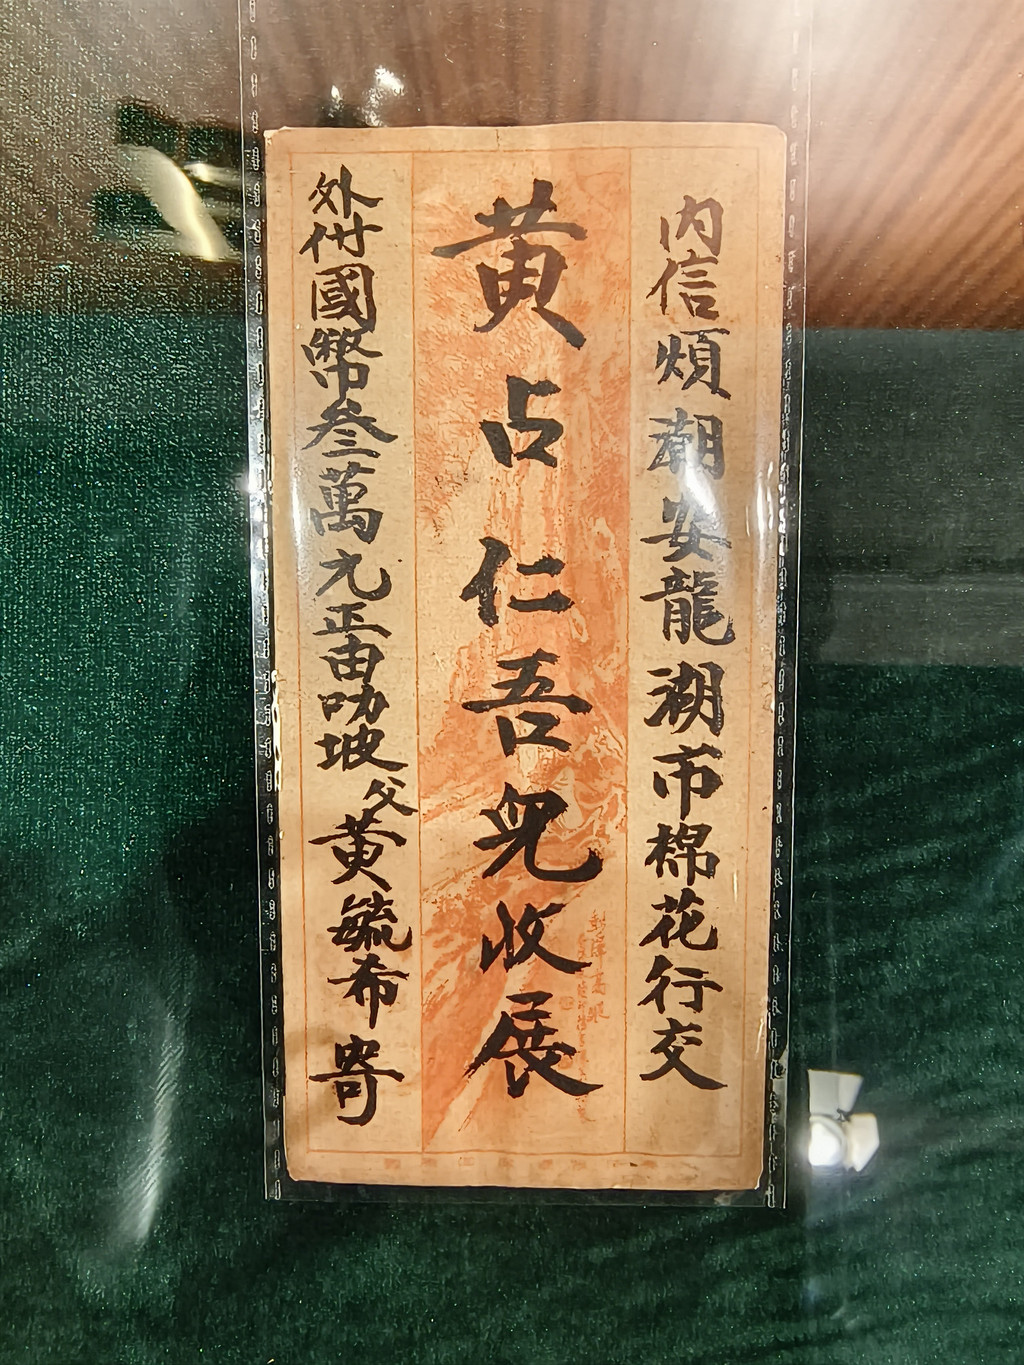 內信煩潮安龍湖市棉花行交
黃占仁吾兒收展
外付國幣叁萬元正由叻坡父黃毓希寄